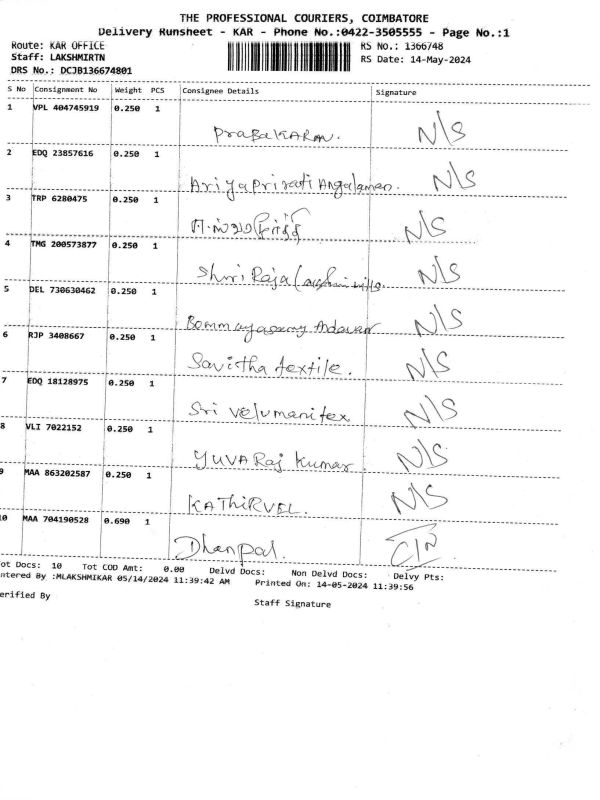 THE PROFESSIONAL COURIERS, COIMBATORE
Delivery Runsheet - KAR - Phone No.:0422-3505555 - Page No.:1
Route: KAR OFFICE RS No.: 1366748
Staff: LAKSHMIRTN RS Date: 14-May-2024
DRS No.: DCJB136674801
S No Consignment No Weight PCS Consignee Details Signature
1 VPL 404745919 0.250 1
PrabaKARAN. N/S
2 EDQ 23857616 0.250 1
Ariya N/S
3 TRP 6280475 0.250 1
N/S
4 TMG 200573877 0.250 1
Shri Raja N/S
5 DEL 730630462 0.250 1
N/S
6 RJP 3408667 0.250 1
Savitha textile. N/S
7 EDQ 18128975 0.250 1
Sri velumanitex N/S
8 VLI 7022152 0.250 1
YUVARaj kumar N/S
9 MAA 863202587 0.250 1
KATHIRVEL. N/S
10 MAA 704190528 0.690 1
Dhanpal.
Tot Docs: 10 Tot COD Amt: 0.00 Delvd Docs: Non Delvd Docs: Delvy Pts:
ntered By :MLAKSHMIKAR 05/14/2024 11:39:42 AM Printed On: 14-05-2024 11:39:56
erified By
Staff Signature